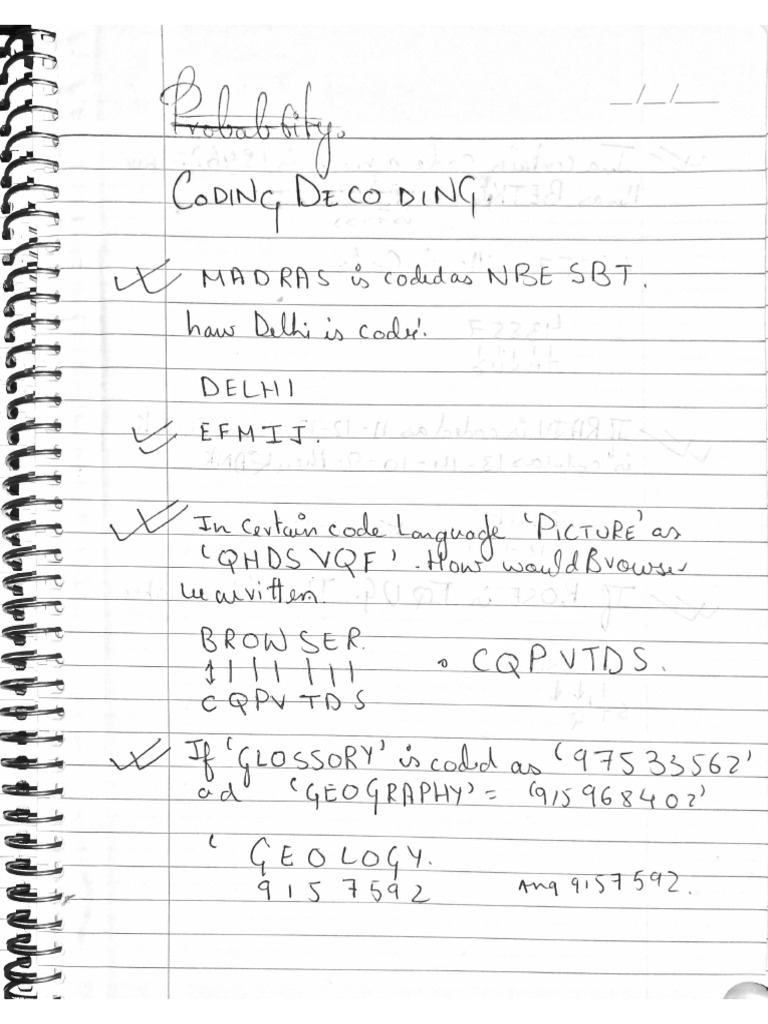 Probability.
_/_/__
CODING DECODING.
MADRAS is coded as NBESBT.
how Delhi is code'.
DELHI
EFMIJ.
In Certain code Language 'PICTURE' as
'QHDSVQF'. How would Browser
written.
BROWSER.
CQPVTDS
CQPVTDS.
If 'GLOSSORY' is coded as '97533562'
ad 'GEOGRAPHY' = '915968402'
GEOLOGY.
9157592
Ans 9157592.